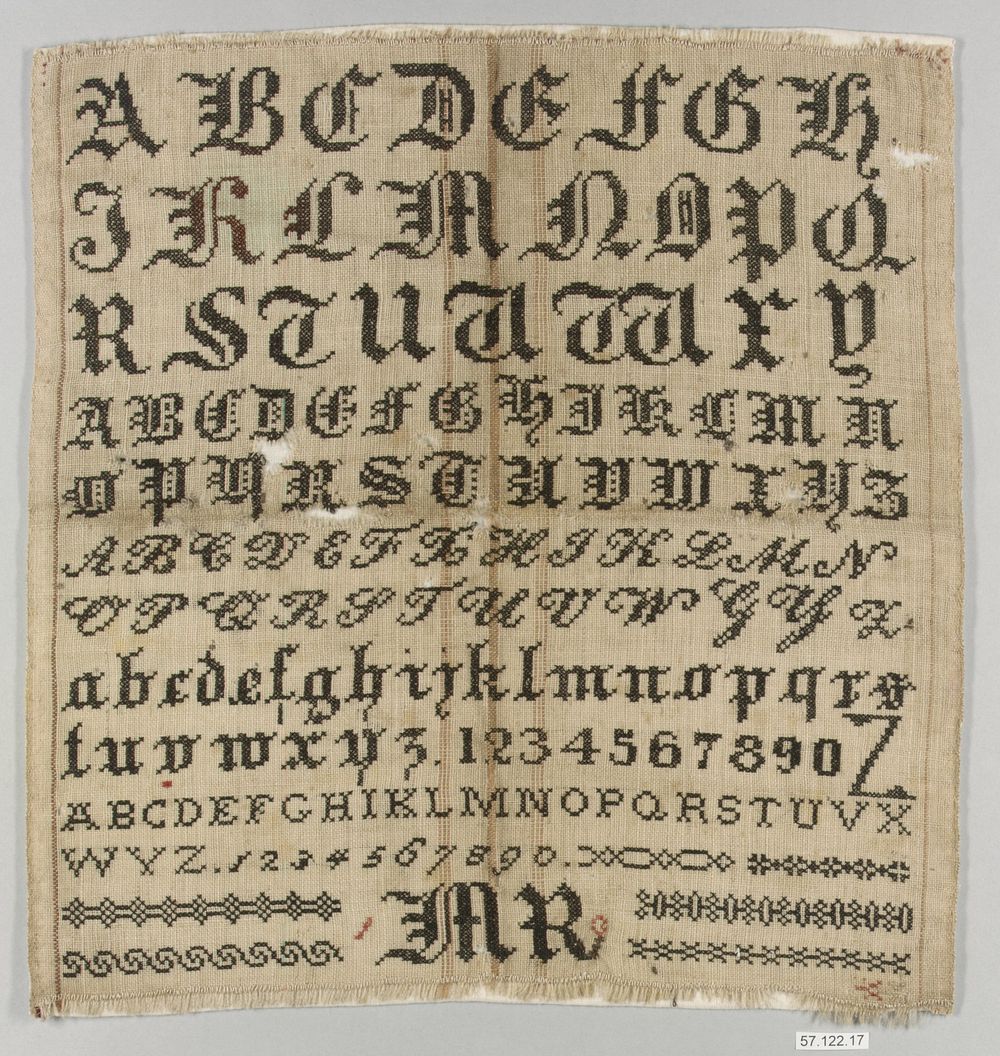 A B C D E F G H
I K L M N O P Q
R S T U V W X Y
A B C D E F G H I K L M N
O P Q R S T U V W X Y Z
A B C D E F X H I K L M N
O P Q R S T U V W G Y Z
a b c d e f g h i j k l m n o p q r s
t u v w x y z . 1 2 3 4 5 6 7 8 9 0 Z
A B C D E F G H I K L M N O P Q R S T U V X
W Y Z . 1 2 3 4 5 6 7 8 9 0 .
M R
57.122.17